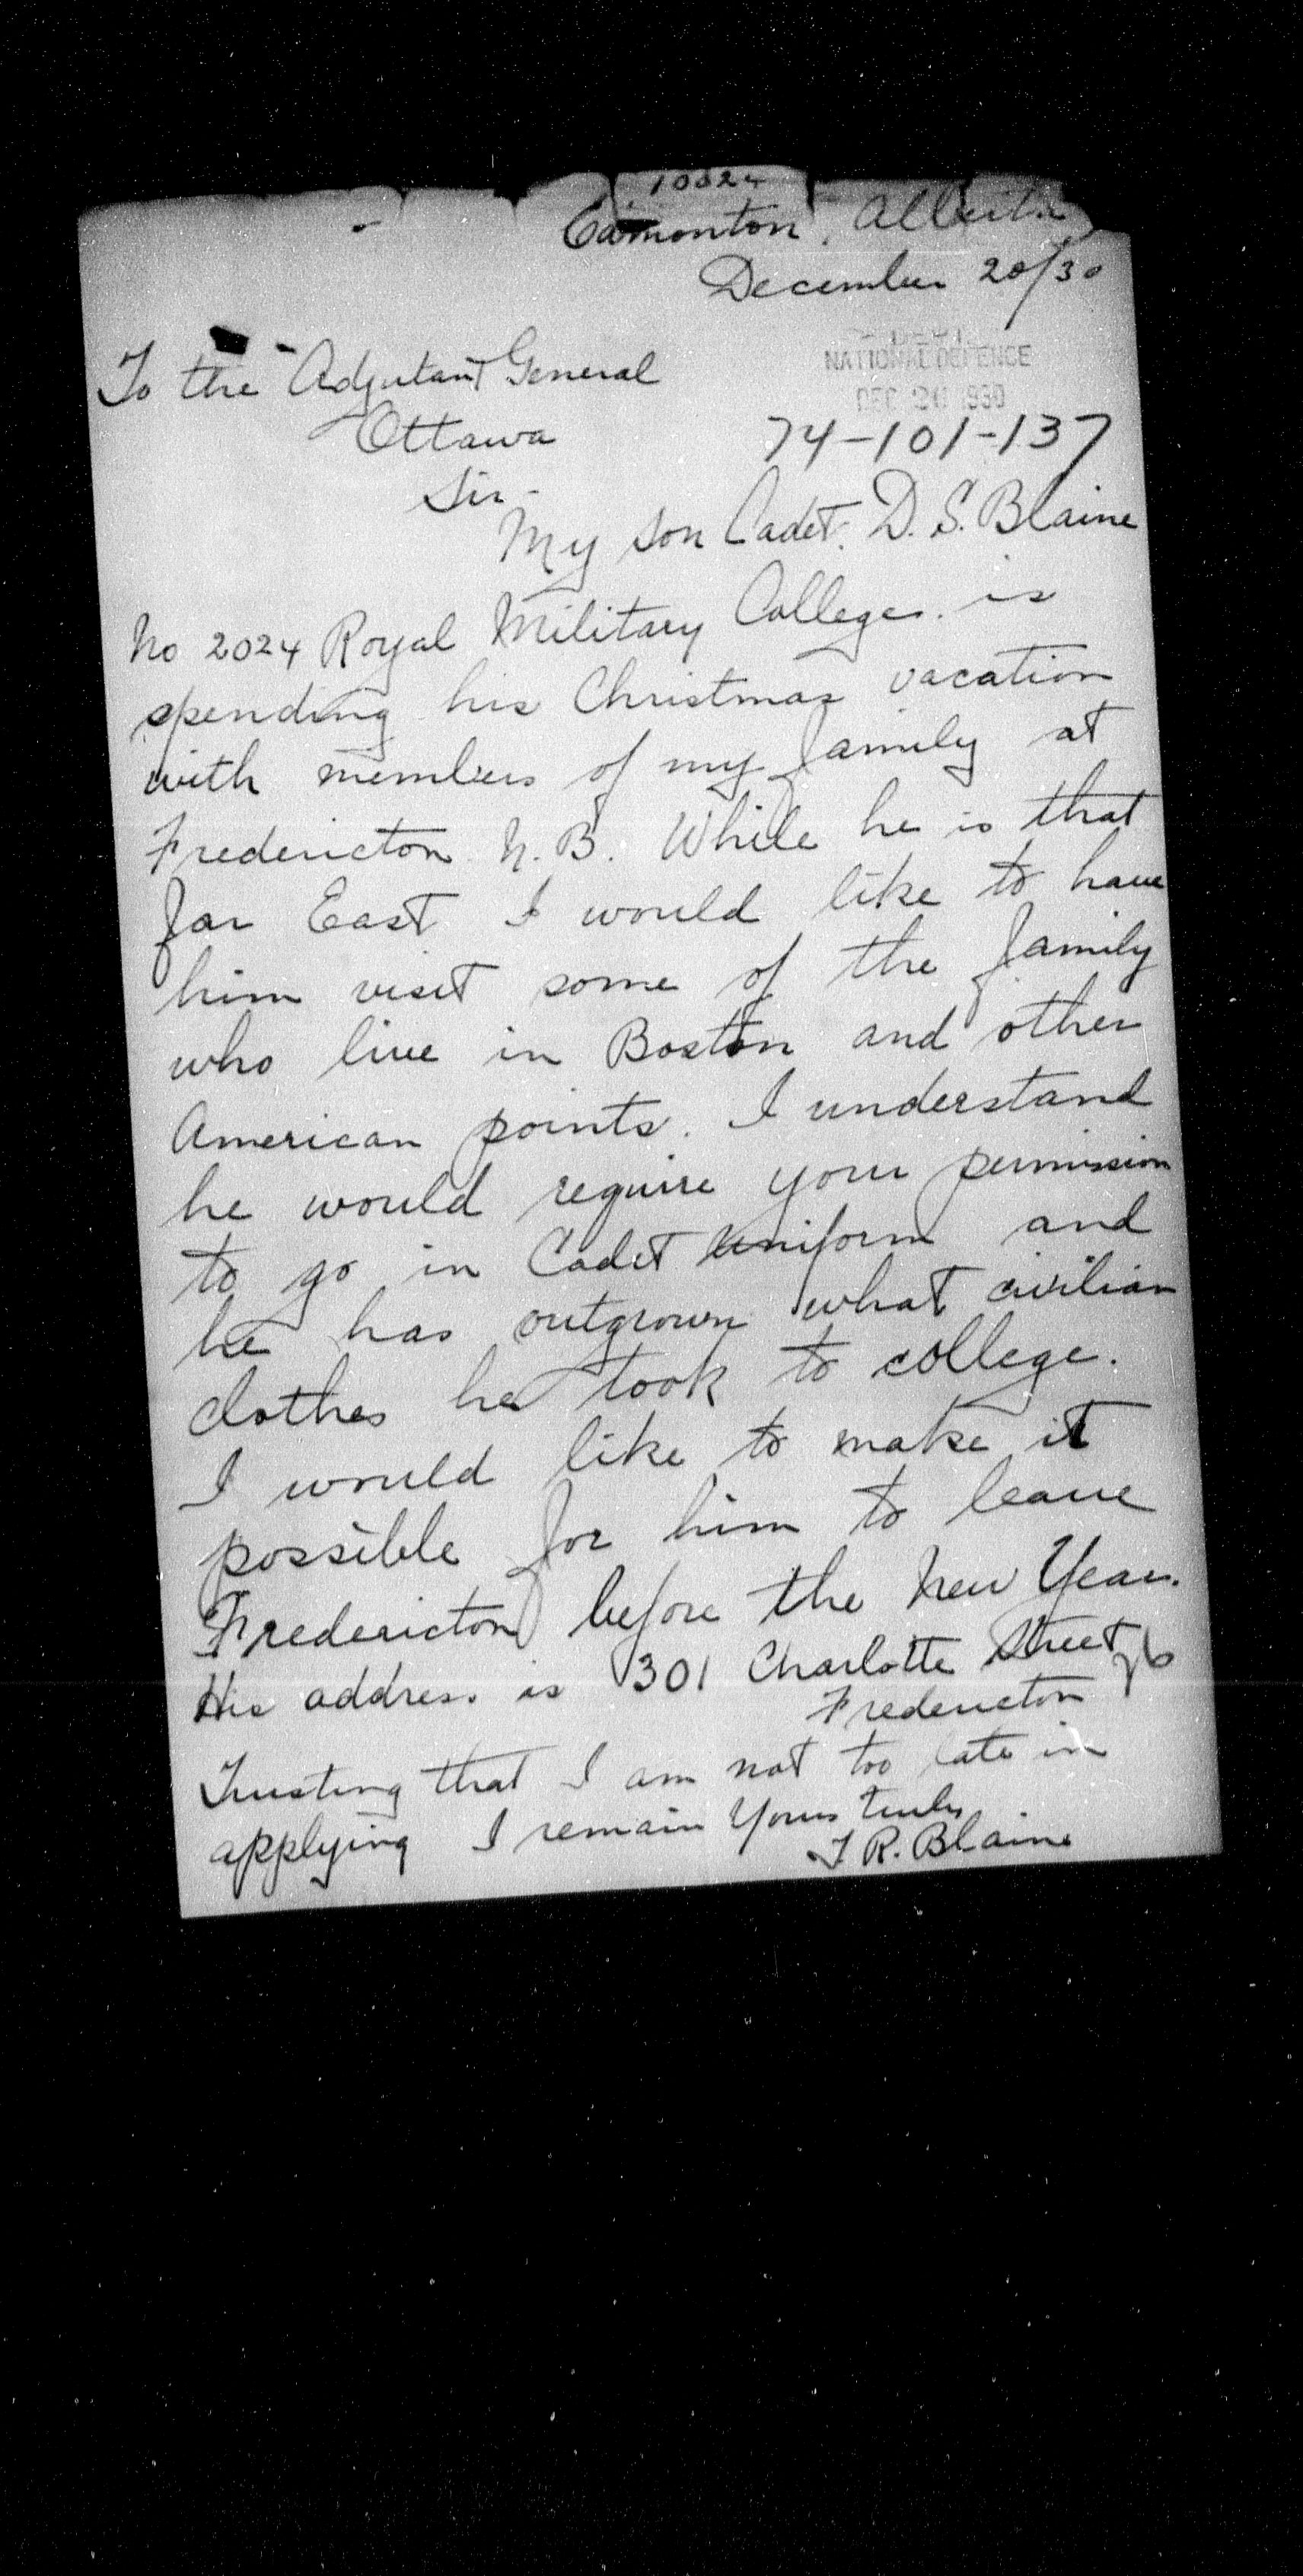 Edmonton, Alberta
December 20/30
NATIONAL DEFENCE
DEC 26 1930
To the Adjutant General
Ottawa
74-101-137
Sir -
My son Cadet. D. S. Blaine
No 2024 Royal Military College. is
spending his Christmas vacation
with members of my family at
Fredericton N. B. While he is that
far East I would like to have
him visit some of the family
who live in Boston and other
American points. I understand
he would require your permission
to go in Cadet Uniform and
he has outgrown what civilian
clothes he took to college.
I would like to make it
possible for him to leave
Fredericton before the New Year.
His address is 301 Charlotte Street
Fredericton
Trusting that I am not too late in
applying I remain Yours truly
T R. Blaine